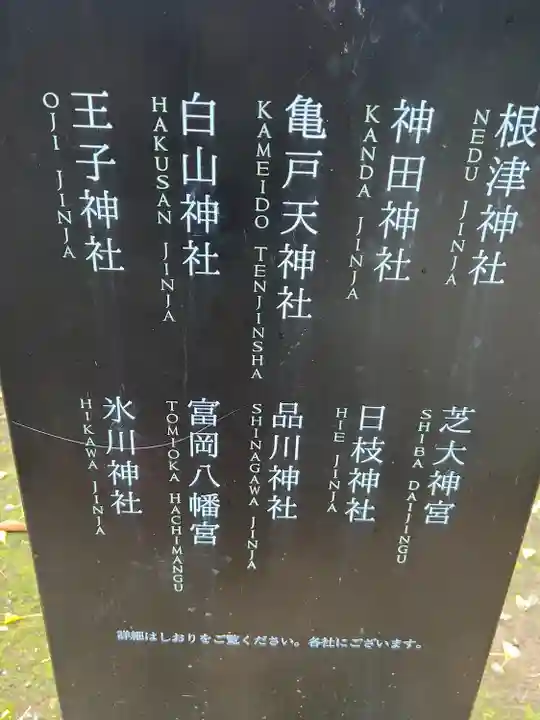 根津神社
NEDU JINJA
神田神社
KANDA JINJA
亀戸天神社
KAMEIDO TENJINSHA
白山神社
HAKUSAN JINJA
王子神社
OJI JINJA
芝大神宮
SHIBA DAIJINGU
日枝神社
HIE JINJA
品川神社
SHINAGAWA JINJA
富岡八幡宮
TOMIOKA HACHIMANGU
氷川神社
HIKAWA JINJA
詳細はしおりをご覧ください。各社にございます。